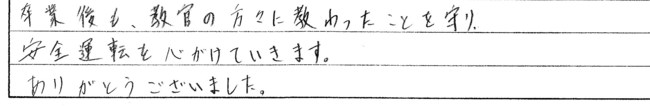 卒業後も、教官の方々に教わったことを守り、
安全運転を心がけていきます。
ありがとうございました。